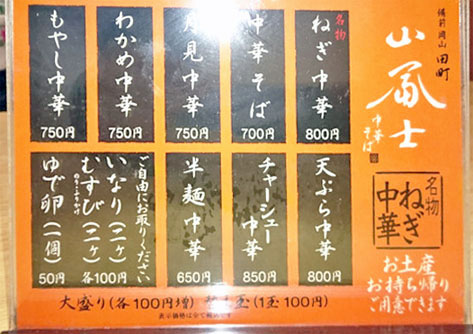 備前岡山
田町
山冨士
中華そば
名物
ねぎ中華
800円
中華そば
700円
月見中華
750円
わかめ中華
750円
もやし中華
750円
天ぷら中華
800円
チャーシュー中華
850円
半麺中華
650円
ご自由にお取りください
いなり(二ヶ)
むすび(二ヶ)
各100円
ゆで卵(一個)
50円
名物
ねぎ
中華
お土産
お持ち帰り
ご用意できます
大盛り(各100円増)
玉(1玉100円)
表示価格は全て税込です